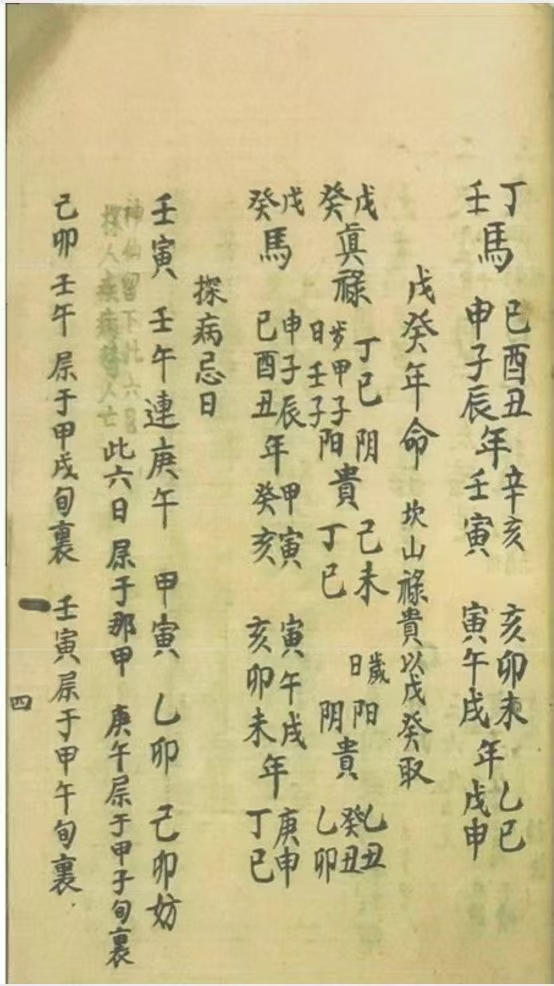 丁壬馬 巳酉丑申子辰年 辛亥壬寅 亥卯未寅午戌年 乙巳戊申
戊癸年命 坎山祿貴以戊癸取
戊癸真祿 丁巳歲甲子日壬子 阴阳貴 己未丁巳 歲日阳阴貴 乙丑癸丑乙卯
戊癸馬 申子辰巳酉丑年 甲寅癸亥 寅午戌亥卯未年 庚申丁巳
探病忌日
壬寅 壬午連庚午 甲寅 乙卯 己卯妨
神仙留下此六日
探人疾病替人亡
此六日屎于那甲 庚午屎于甲子旬裏
己卯 壬午屎于甲戌旬裏 壬寅屎于甲午旬裏
四